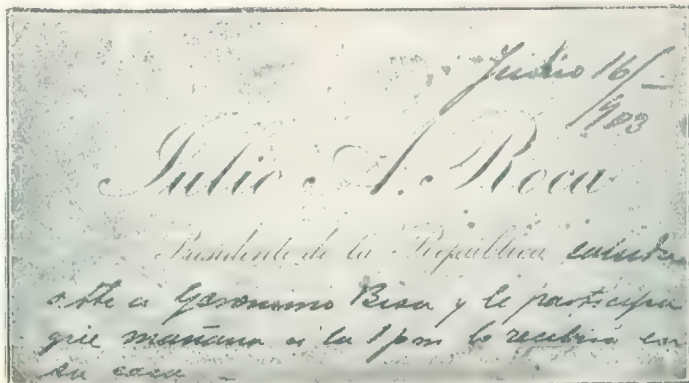 Julio 16/
903
Julio A. Roca
Presidente de la República saluda
atte a Geronimo Bisa y le participa
que mañana a la 1 pm lo recibirá en
su casa